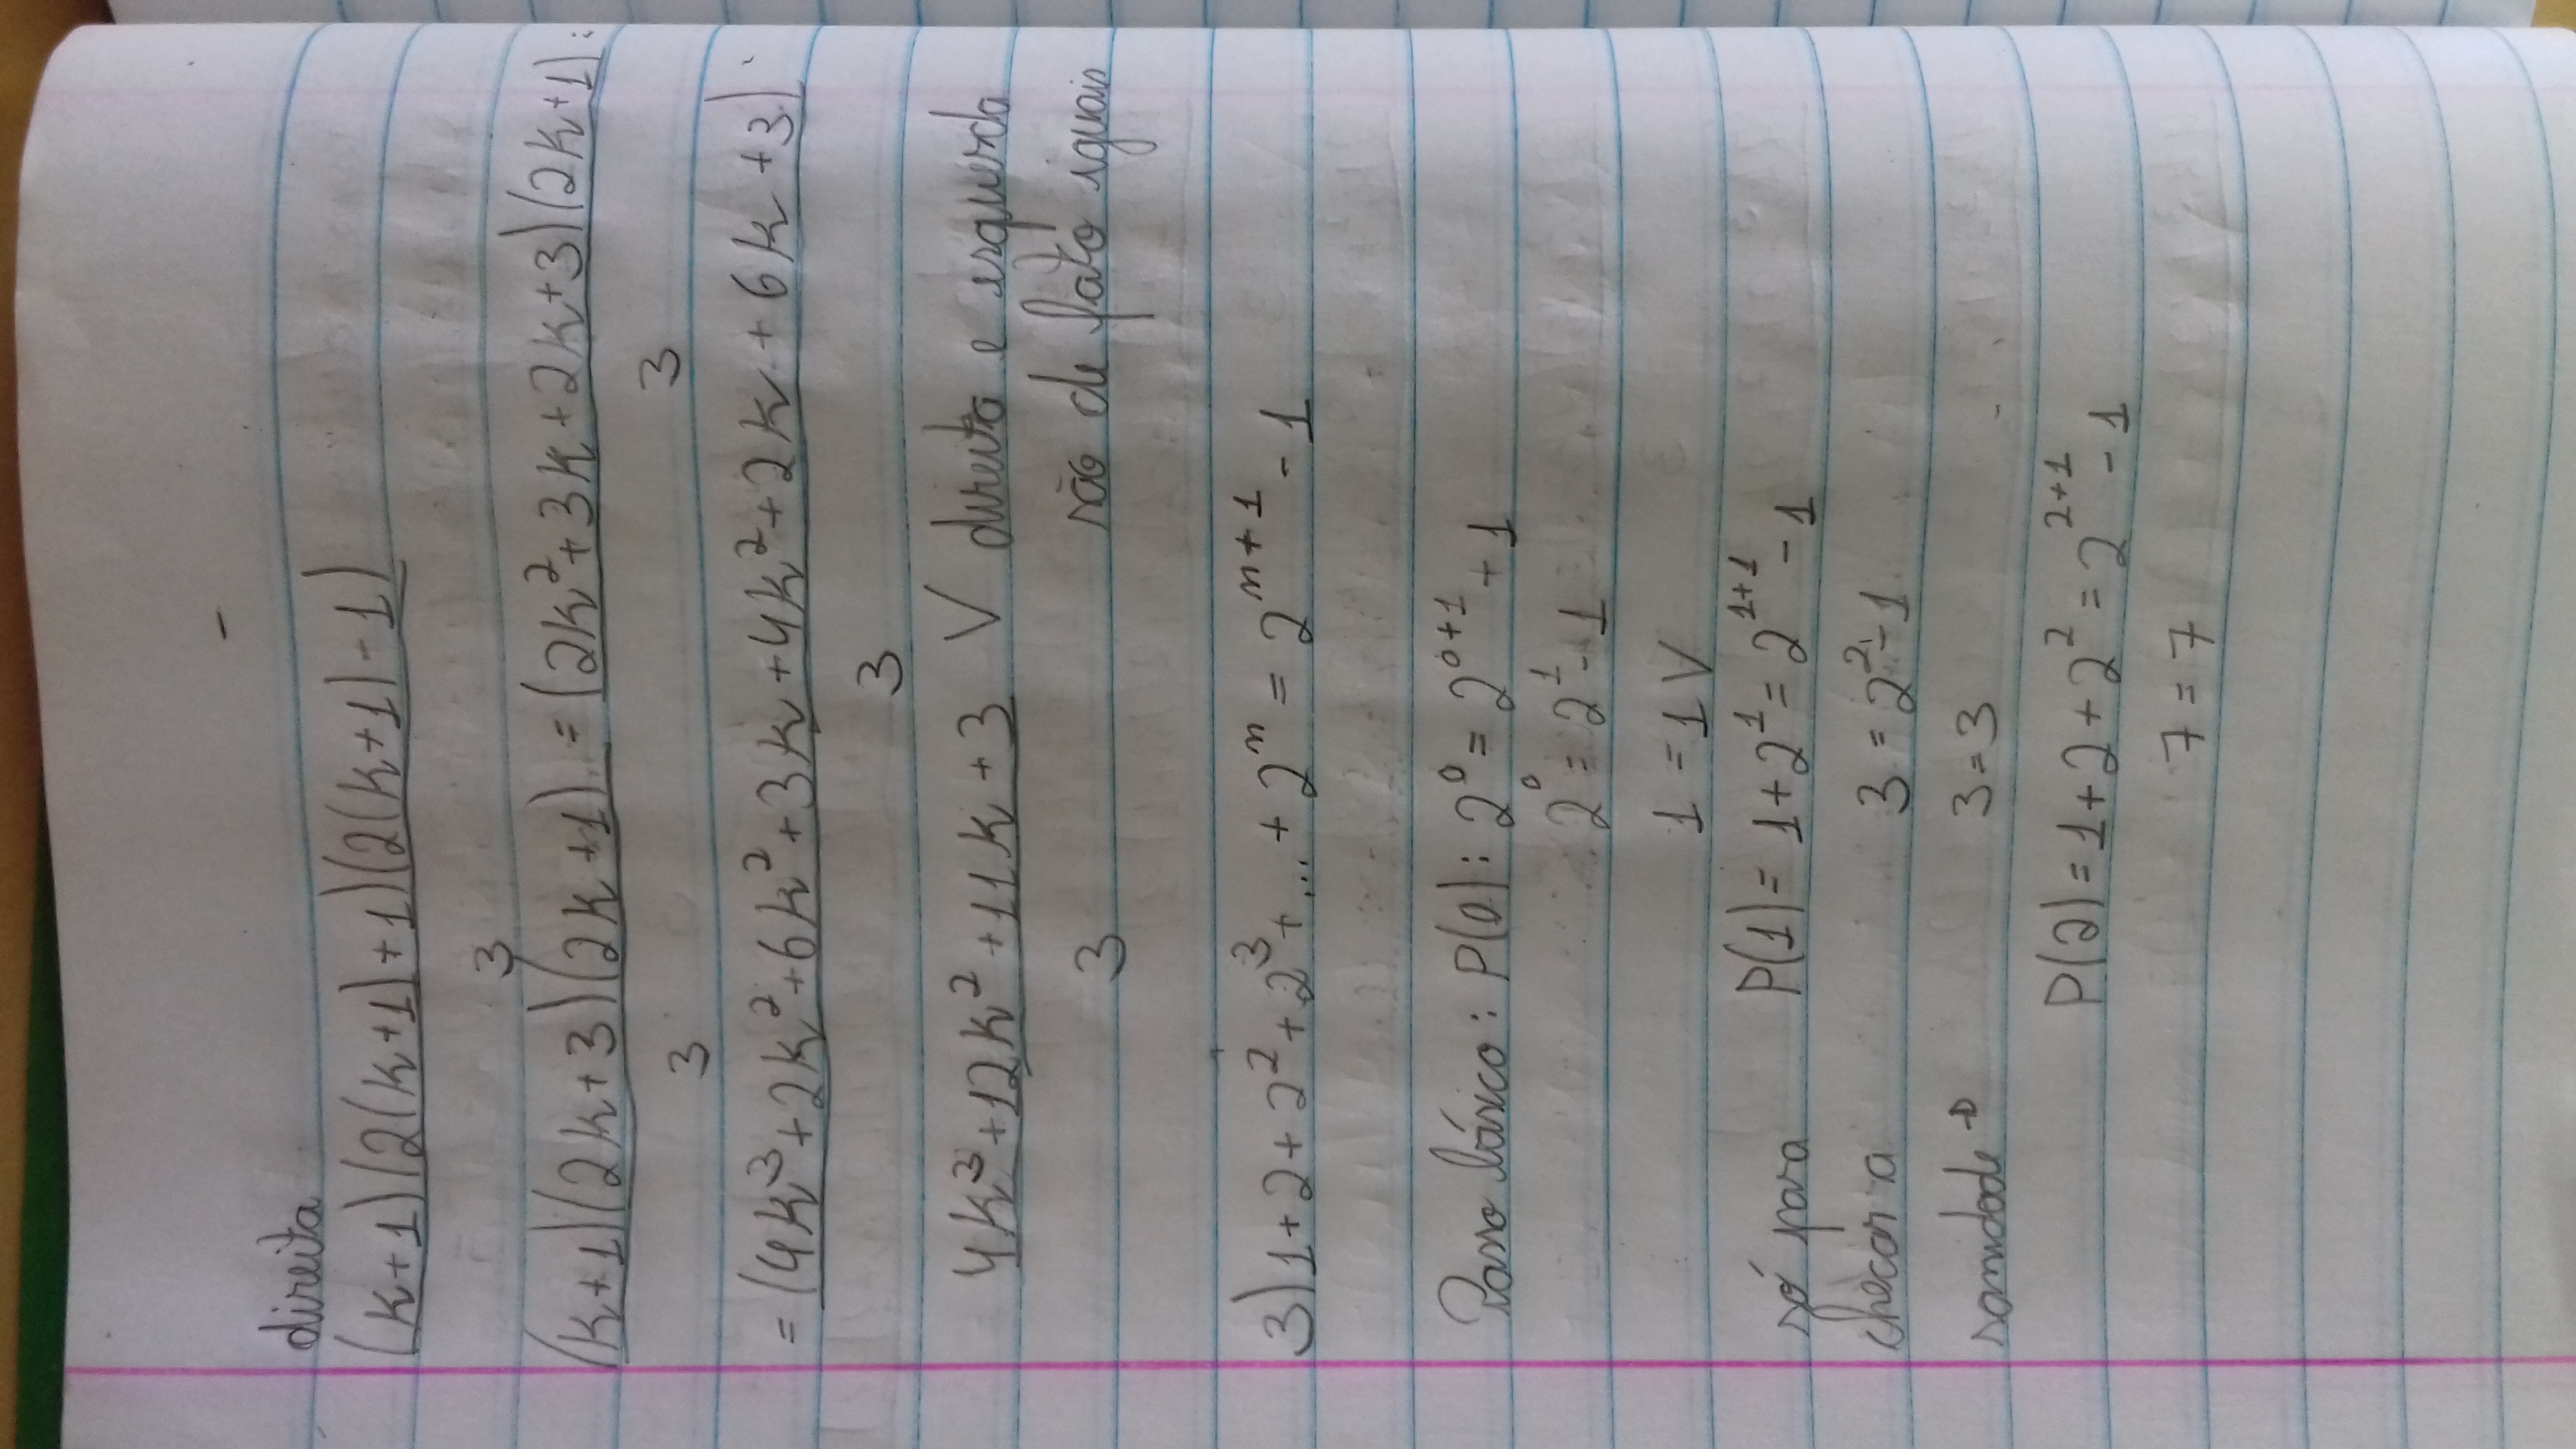 direita
(k+1)(2(k+1)+1)(2(k+1)-1)
3
(k+1)(2k+3)(2k+1) = (2k²+3k+2k+3)(2k+1) :
3 3
= (4k³+2k²+6k²+3k+4k²+2k+6k+3)
3
4k³+12k²+11k+3 V direita e esquerda
3 são de fato iguais
3) 1+2+2²+2³+...+2ⁿ = 2ⁿ⁺¹ - 1
Passo básico: P(0): 2⁰ = 2⁰⁺¹ + 1
2⁰ = 2¹ - 1
1 = 1 V
só para P(1) = 1+2¹ = 2¹⁺¹ - 1
checar a 3 = 2² - 1
sanidade → 3 = 3
P(2) = 1+2+2² = 2²⁺¹ - 1
7 = 7